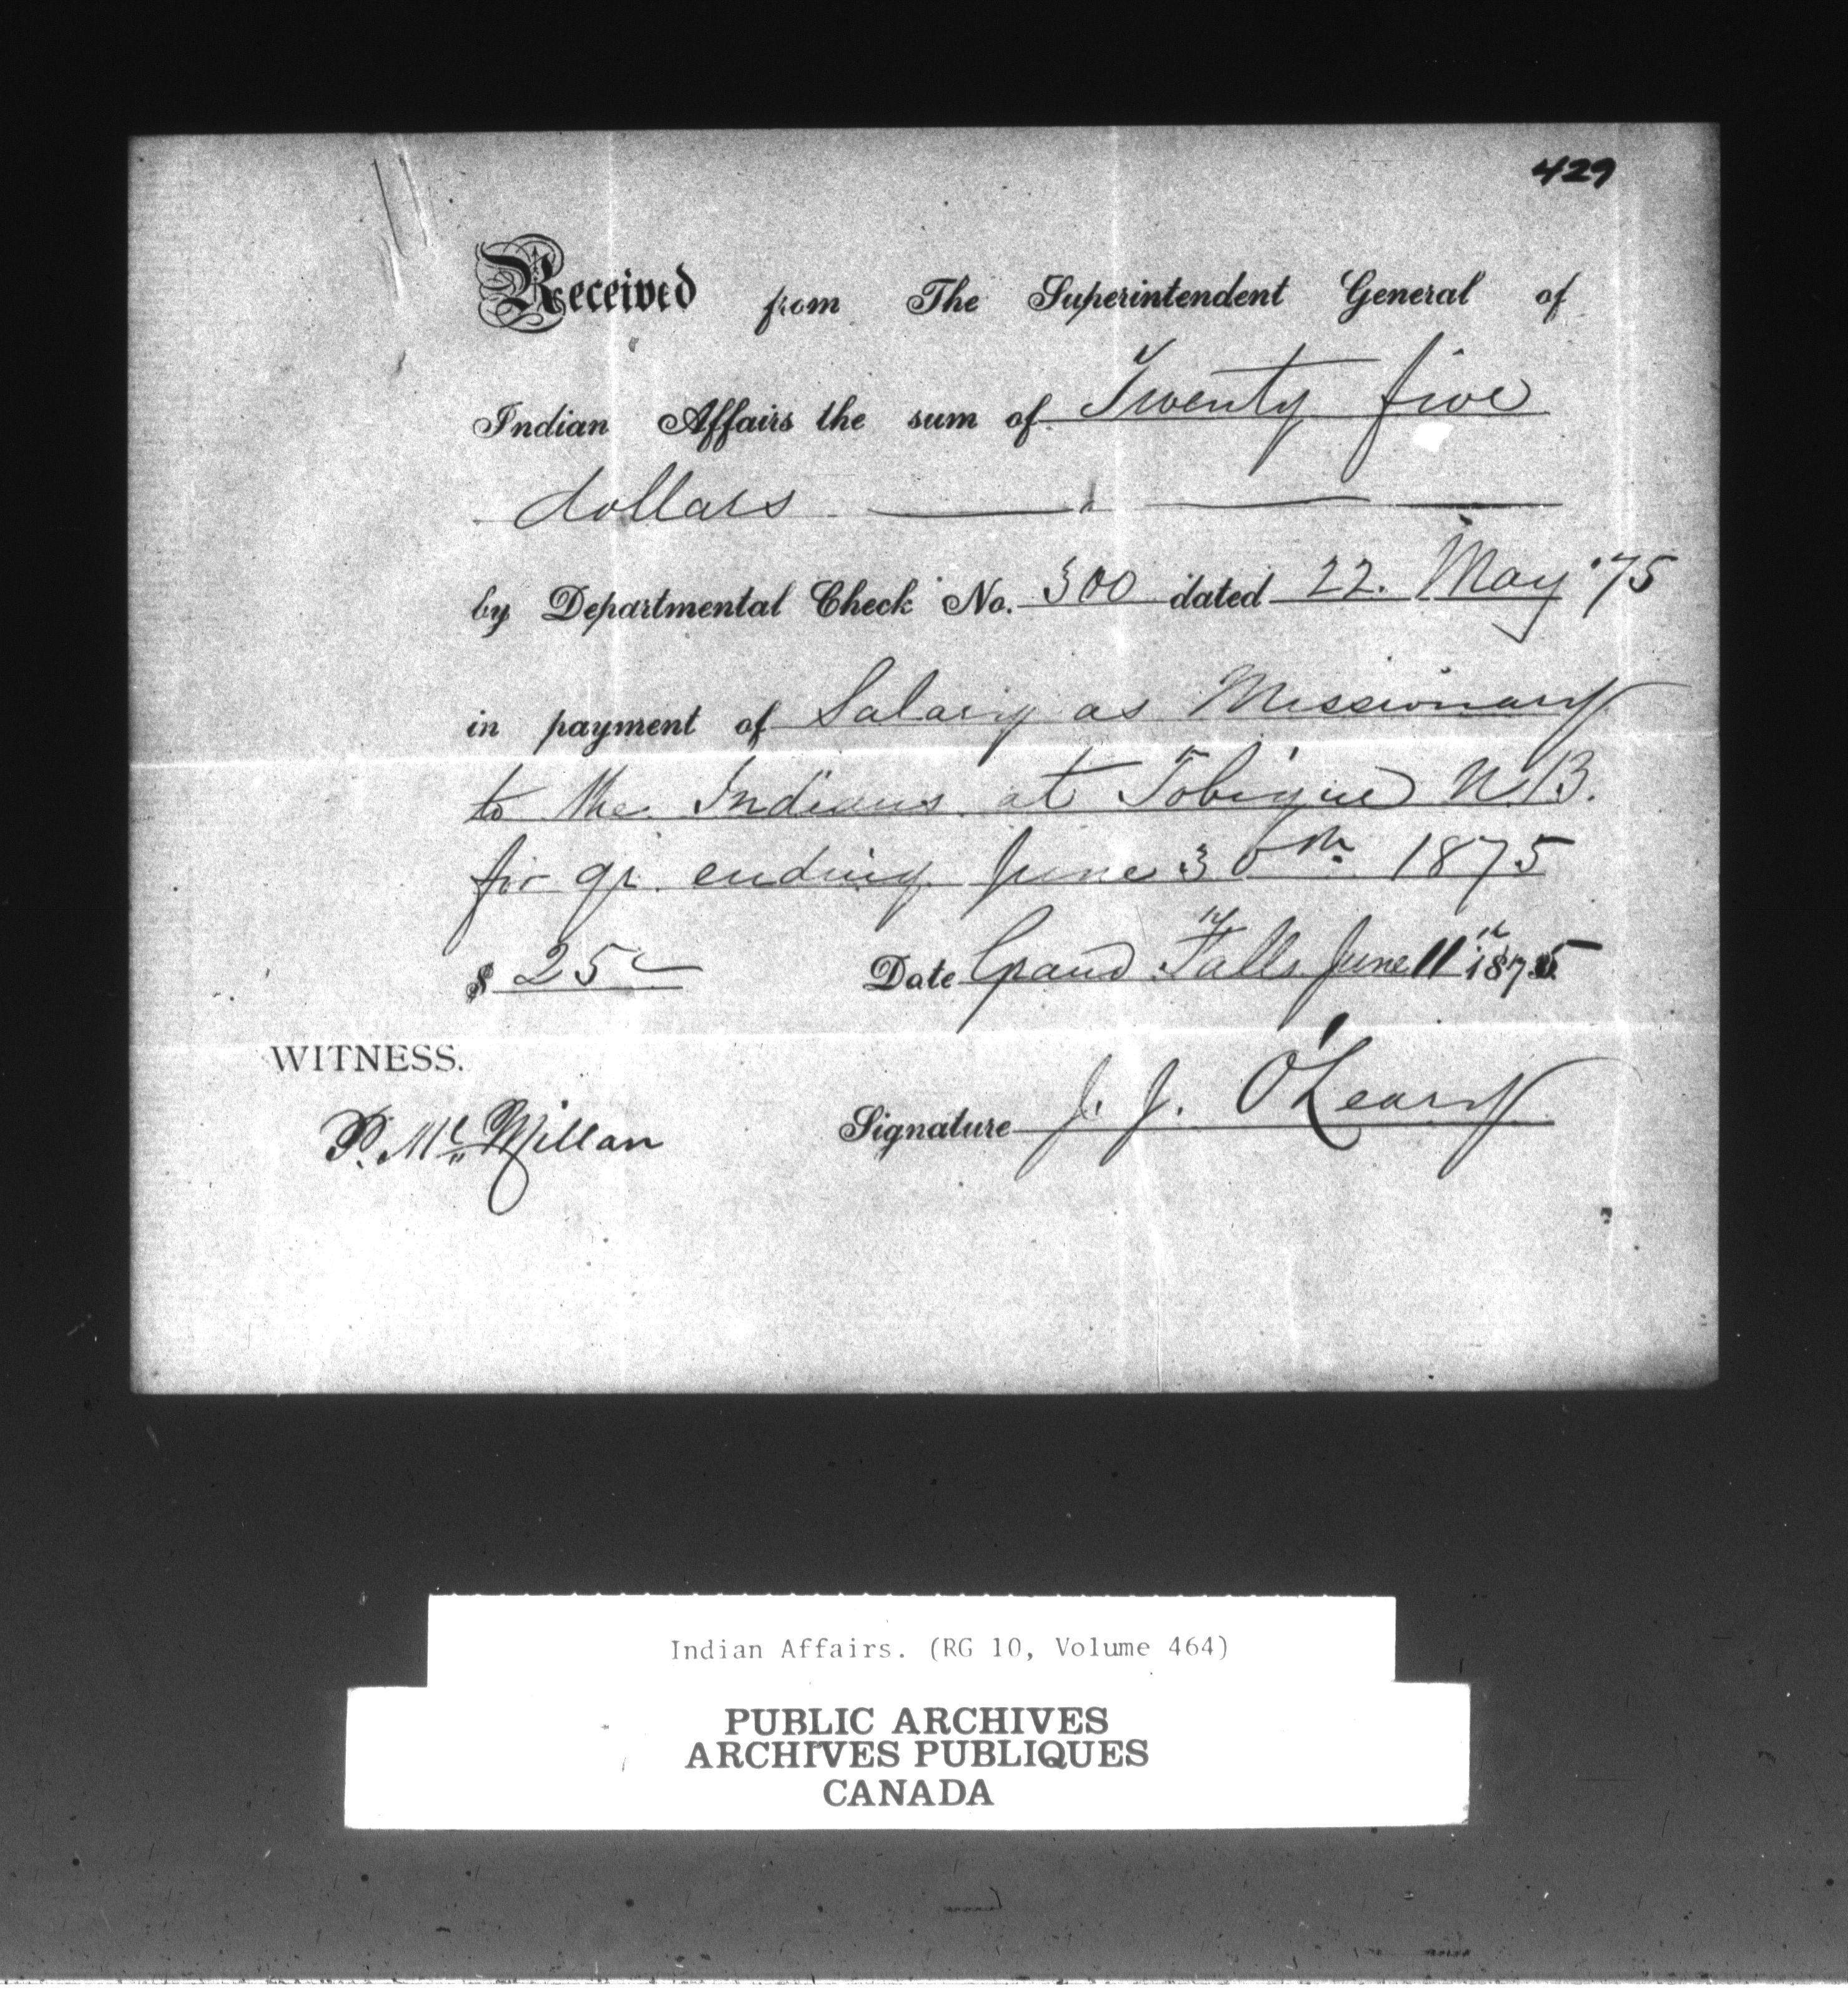 429
Received from The Superintendent General of
Indian Affairs the sum of Twenty five
dollars
by Departmental Check No. 300 dated 22. May '75
in payment of Salary as Missionary
to the Indians at Tobique N.B.
for qr. ending June 30th 1875
$ 25 Date Grand Falls June 11th 1875
WITNESS.
P. Mc Millan
Signature J. J. O'Leary
Indian Affairs. (RG 10, Volume 464)
PUBLIC ARCHIVES
ARCHIVES PUBLIQUES
CANADA